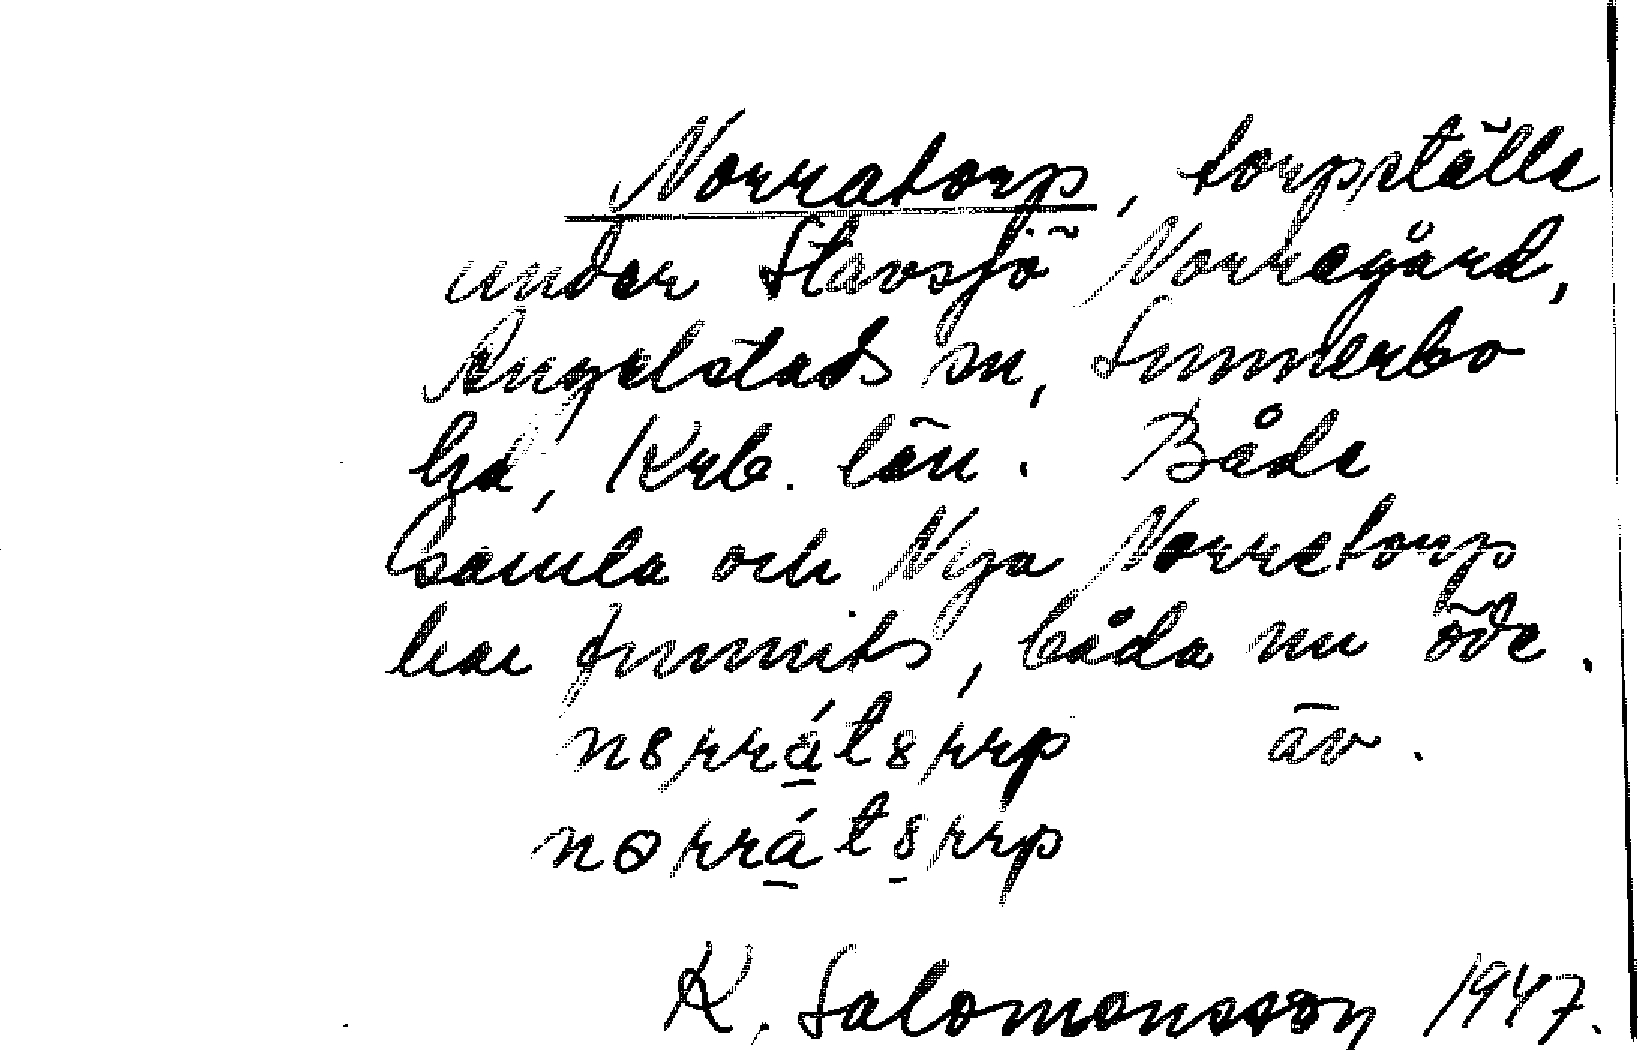 Norratorp, torpställe
under Stavsjö Norregård,
Angelstads sn, Sunnerbo
hd, Krb. län. Både
Gamla och Nya Norratorp
har funnits, båda nu öde.
n8rrát8rrp äv.
norrát8rrp
K. Salomonsson 1947.